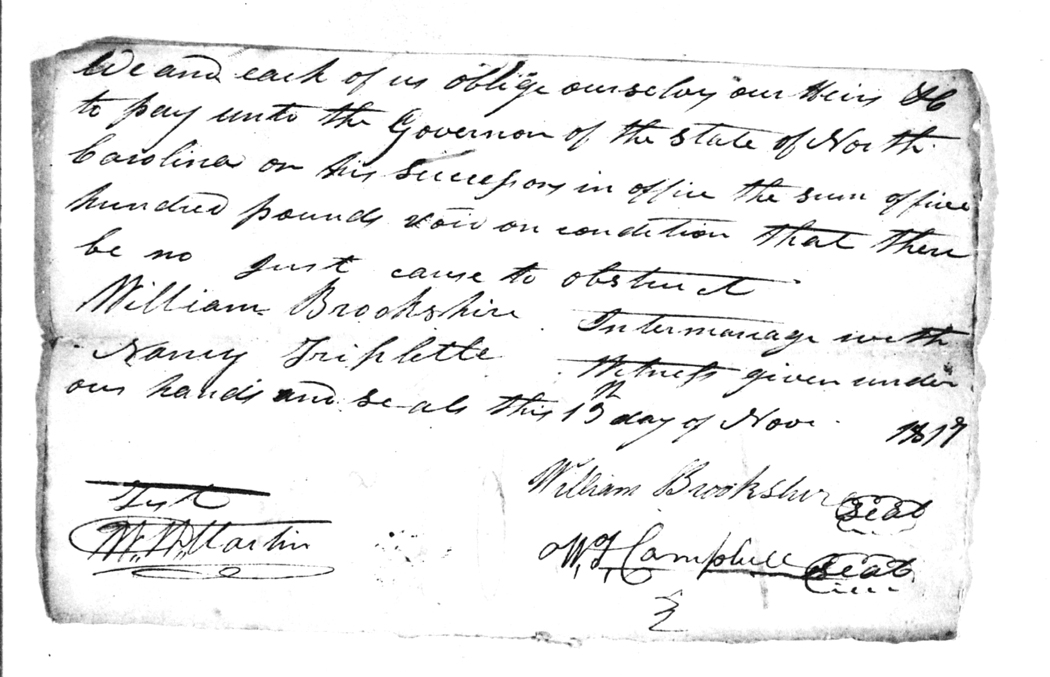 We and each of us oblige ourselves our Heirs &C
to pay unto the Governor of the State of North
Carolina or his Successors in office the sum of five
hundred pounds void on condition that there
be no just cause to obstruct
William Brookshire Intermariage with
Nancy Triplette Witness given under
our hands and seals this 15th day of Nov. 1817
Test
William Brookshire seal
W. W. Martin
W, F, Campbell seal